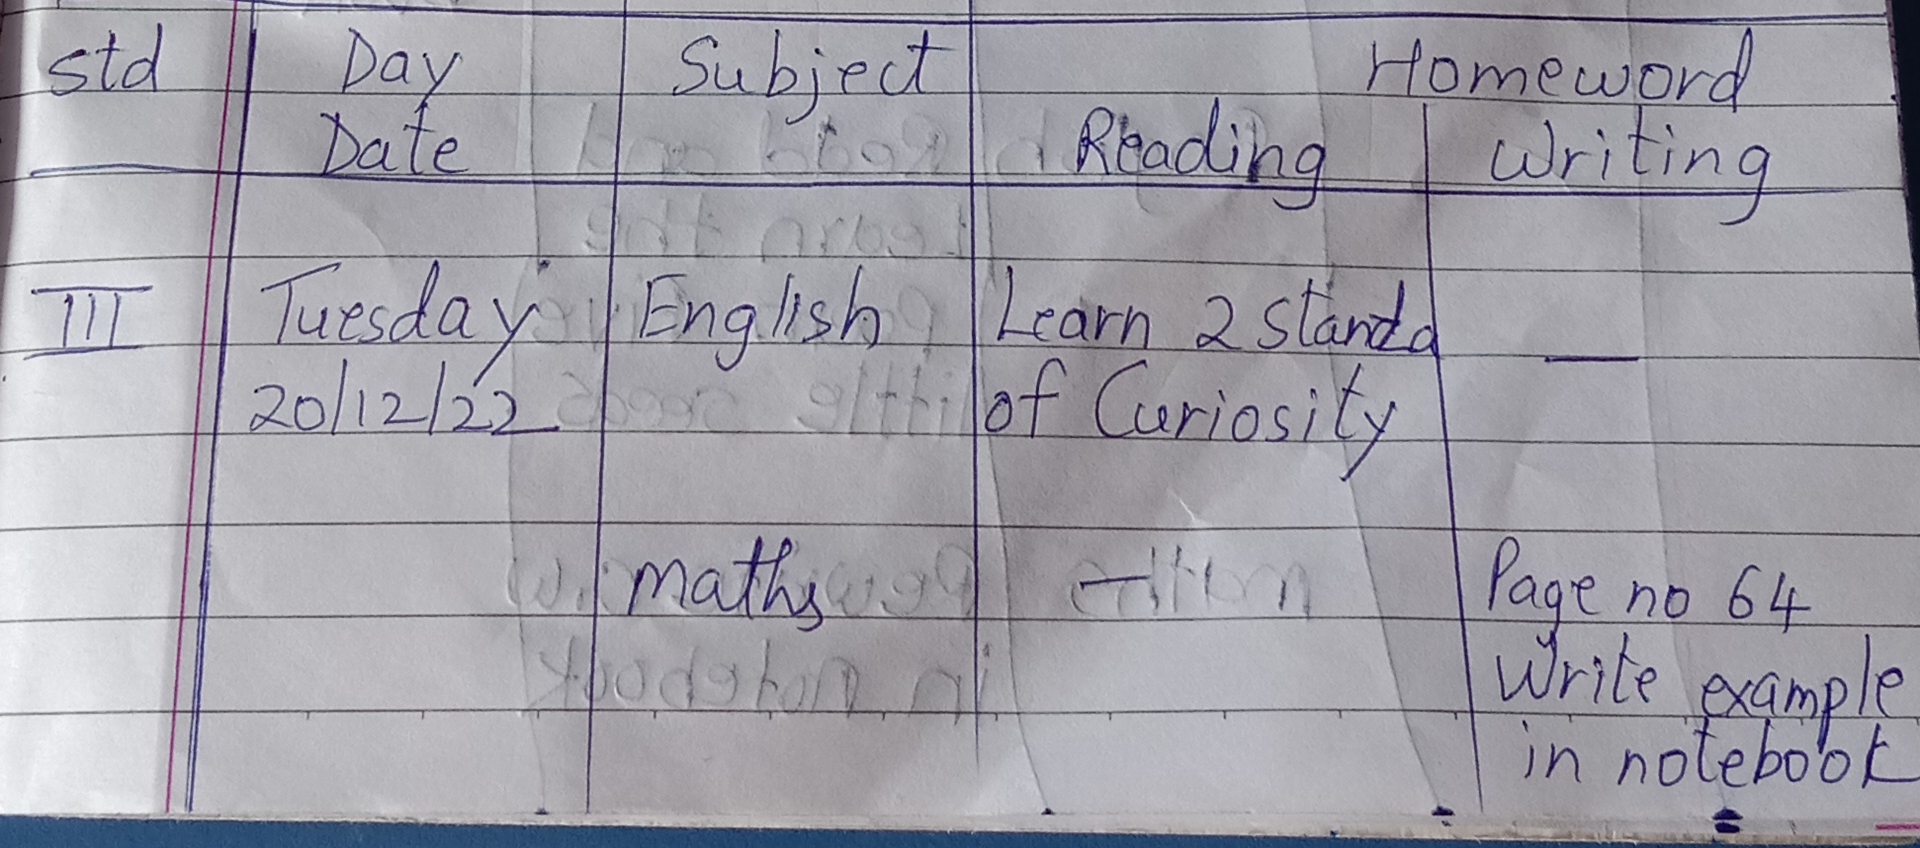 std Day Subject Homeword
Date Reading Writing
III Tuesday English Learn 2 Standa —
20/12/22 of Curiosity
maths — Page no 64
Write example
in notebook